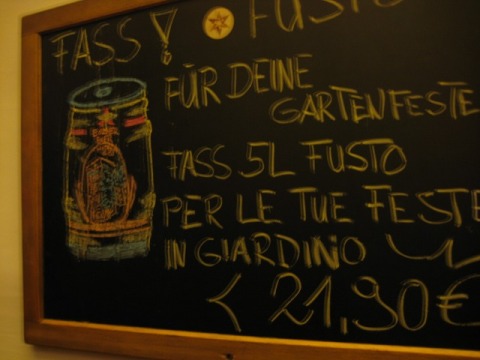 FASS! FUSTO
FÜR DEINE
GARTENFESTE
FASS 5L FUSTO
PER LE TUE FESTE
IN GIARDINO
< 21,90€